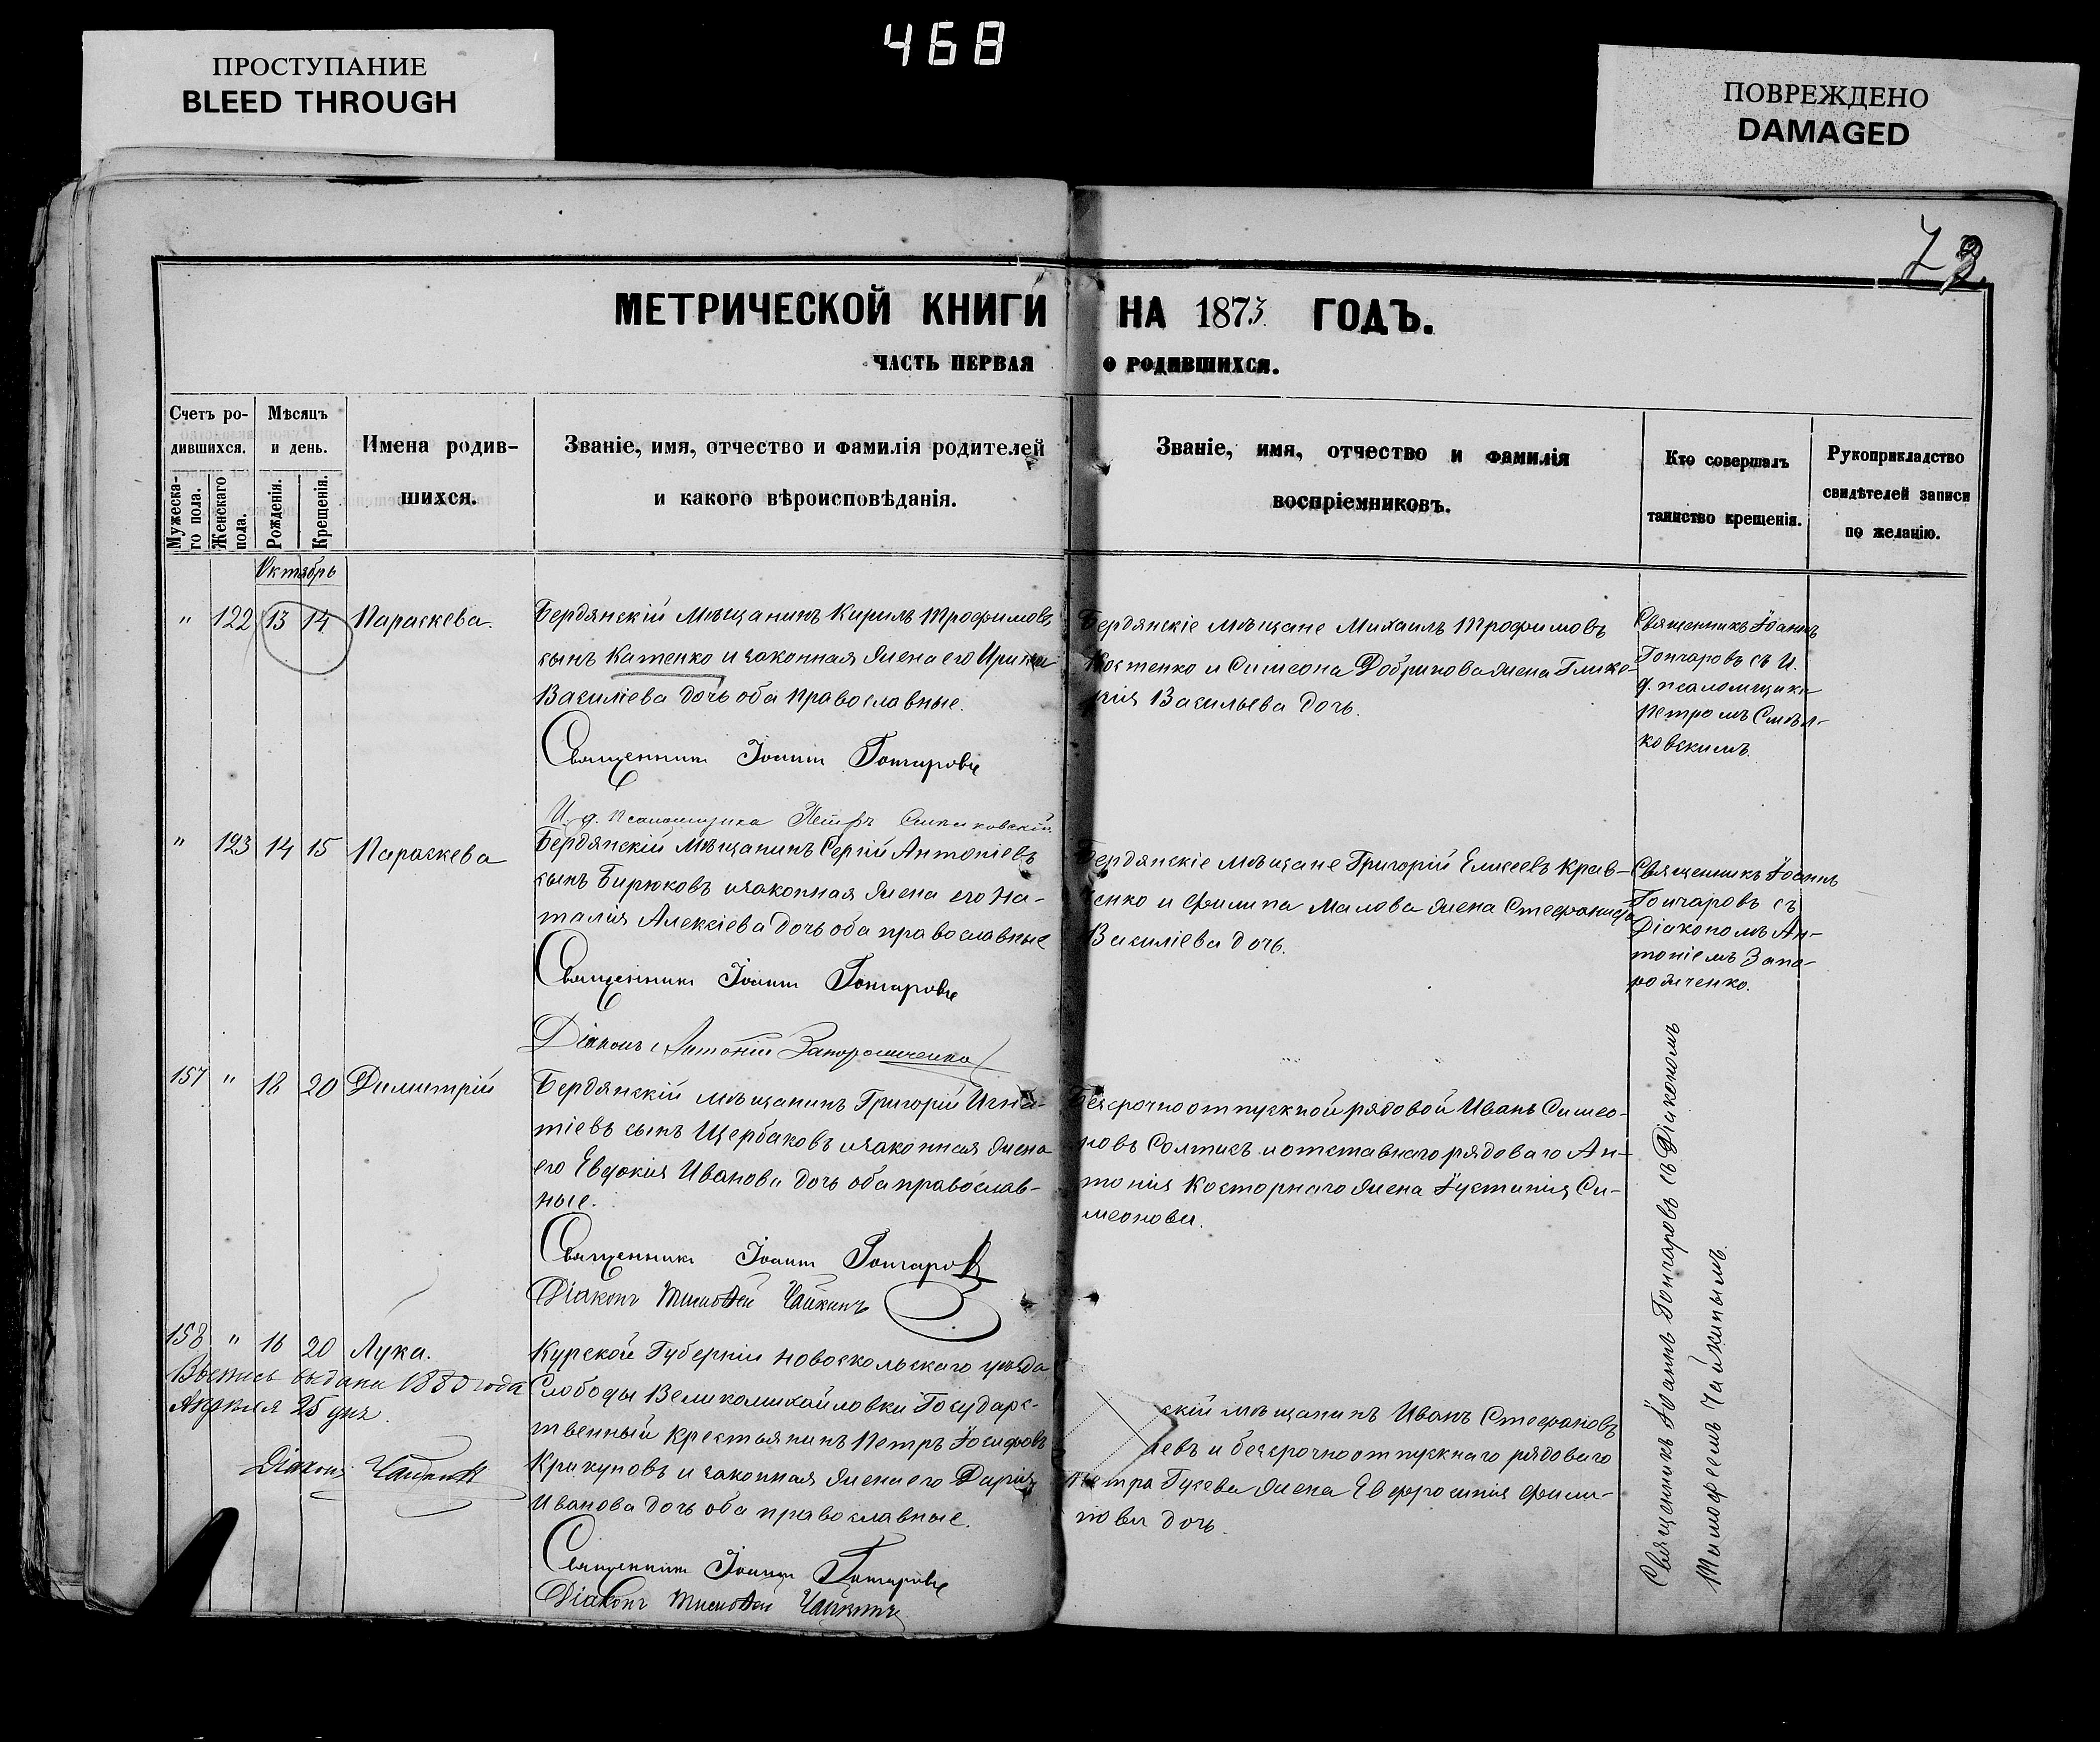 468
ПРОСТУПАНИЕ
BLEED THROUGH
ПОВРЕЖДЕНО
DAMAGED
МЕТРИЧЕСКОЙ КНИГИ НА 1873 ГОДЪ.
ЧАСТЬ ПЕРВАЯ О РОДИВШИХСЯ.
Счетъ ро-
дившихся.
Мужеска-
го пола.
Женскаго
пола.
Мѣсяцъ
и день.
Рожденія.
Крещенія.
Имена родив-
шихся.
Званіе, имя, отчество и фамилія родителей
и какого вѣроисповѣданія.
Званіе, имя, отчество и фамилія
воспріемниковъ.
Кто совершалъ
таинство крещенія.
Рукоприкладство
свидѣтелей записи
по желанію.
Октябрь
" 122 13 14 Параскева.
Бердянскій Мѣщанинъ Кирилъ Трофимовъ
сынъ Катенко и законная жена его Ирина
Василіева дочь оба православные.
Священникъ Іоаннъ Гончаровъ
И. д. Псаломщика Петръ
Бердянскіе мѣщане Михаилъ Трофимовъ
Костенко и Симеона Добринова жена Глике-
рія Васильева дочь.
Священникъ Іоаннъ
Гончаровъ съ И.
д. псаломщика
Петромъ
ковскимъ.
" 123 14 15 Параскева
Бердянскій Мѣщанинъ Сергій Антоніевъ
сынъ Бирюковъ изаконная жена его На-
талія Алексіева дочь оба православные
Священникъ Іоаннъ Гончаровъ
Діаконъ Антоній Запорожченко
Бердянскіе мѣщане Григорій Елисеевъ Крав-
ченко и Филипа Малова жена Стефанида
Василіева дочь.
Священникъ Іоаннъ
Гончаровъ съ
Діакономъ Ан-
тоніемъ Запо-
рожченко.
157 " 18 20 Димитрій
Бердянскій мѣщанинъ Григорій Игна-
тіевъ сынъ Щербаковъ изаконная жена
его Евдокія Иванова дочь оба православ-
ные.
Священникъ Іоаннъ Гончаровъ
Діаконъ Тимоѳей Чайкинъ
Безсрочноотпускной рядовой Иванъ Симео-
новъ Солтисъ и отставнаго рядоваго Ан-
тонія Косторнаго жена Іустинія Си-
меонова.
Священникъ Іоаннъ Гончаровъ съ Діакономъ
Тимофеемъ Чайкинымъ.
158 " 16 20 Лука.
Выпись выдана 1880 года
Апрѣля 25 дня.
Діаконъ Чайкинъ
Курской Губерніи Новоскольскаго уѣзда
Слободы Великомихайловки Государс-
твенный крестьянинъ Петръ Іосифовъ
Крикуновъ и законная жена его Дарія
Иванова дочь оба православные.
Священникъ Іоаннъ Гончаровъ
Діаконъ Тимоѳей Чайкинъ
скій мѣщанинъ Иванъ Стефановъ
евъ и безсрочноотпускнаго рядоваго
Петра Гусева жена Евфросинія Фили-
пова дочь.